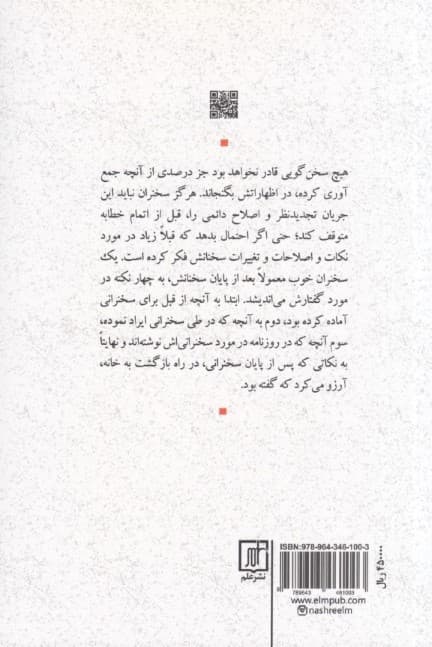 هیچ سخن‌گویی قادر نخواهد بود جز درصدی از آنچه جمع
آوری کرده، در اظهاراتش بگنجاند. هرگز سخنران نباید این
جریان تجدیدنظر و اصلاح دائمی را، قبل از اتمام خطابه
متوقف کند؛ حتی اگر احتمال بدهد که قبلاً زیاد در مورد
نکات و اصلاحات و تغییرات سخنانش فکر کرده است. یک
سخنران خوب معمولاً بعد از پایان سخنانش، به چهار نکته در
مورد گفتارش می‌اندیشد. ابتدا به آنچه از قبل برای سخنرانی
آماده کرده بود، دوم به آنچه که در طی سخنرانی ایراد نموده،
سوم آنچه که در روزنامه در مورد سخنرانی‌اش نوشته‌اند و نهایتاً
به نکاتی که پس از پایان سخنرانی، در راه بازگشت به خانه،
آرزو می‌کرد که گفته بود.
نشرعلم
ISBN: 978-964-346-100-3
www.elmpub.com
nashreelm
۴۵۰۰۰۰ ریال